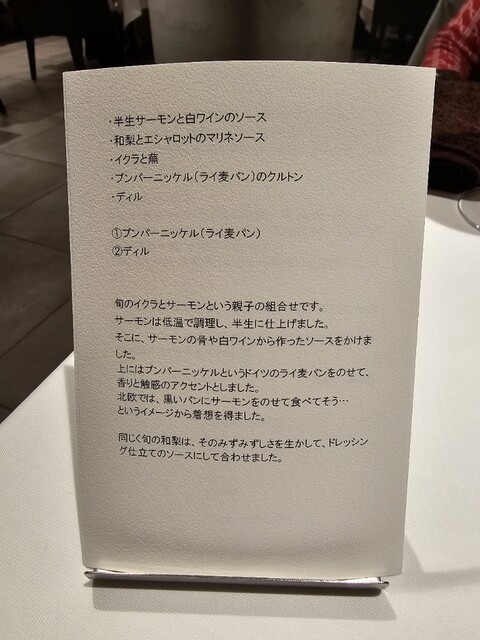 ・半生サーモンと白ワインのソース
・和梨とエシャロットのマリネソース
・イクラと蕪
・プンパーニッケル（ライ麦パン）のクルトン
・ディル
①プンパーニッケル（ライ麦パン）
②ディル
旬のイクラとサーモンという親子の組合せです。
サーモンは低温で調理し、半生に仕上げました。
そこに、サーモンの骨や白ワインから作ったソースをかけま
した。
上にはプンパーニッケルというドイツのライ麦パンをのせて、
香りと触感のアクセントとしました。
北欧では、黒いパンにサーモンをのせて食べてそう…
というイメージから着想を得ました。
同じく旬の和梨は、そのみずみずしさを生かして、ドレッシン
グ仕立てのソースにして合わせました。